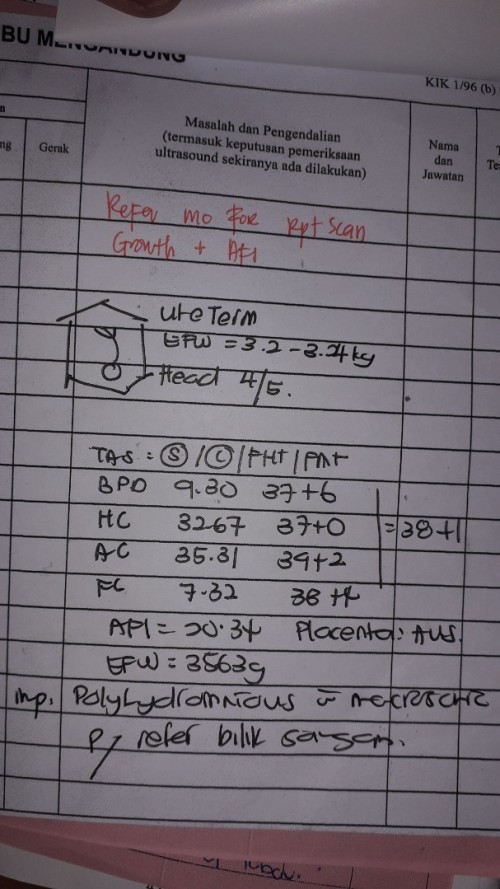 BU MENGANDUNG
KIK 1/96 (b)
Gerak
Masalah dan Pengendalian
(termasuk keputusan pemeriksaan
ultrasound sekiranya ada dilakukan)
Nama
dan
Jawatan
Refer mo for rpt scan
Growth + AFI
Term
EFW = 3.2 - 3.4 kg
Head 4/5.
TAS : Ⓢ / Ⓒ / FHT /
BPD 9.30 37+6
HC 32.67 37+0 = 38+1
AC 35.31 39+2
FL 7.32
AFI = 20.34 Placenta:
EFW = 3563g
Imp. Polyhydromnious
P/ refer bilik